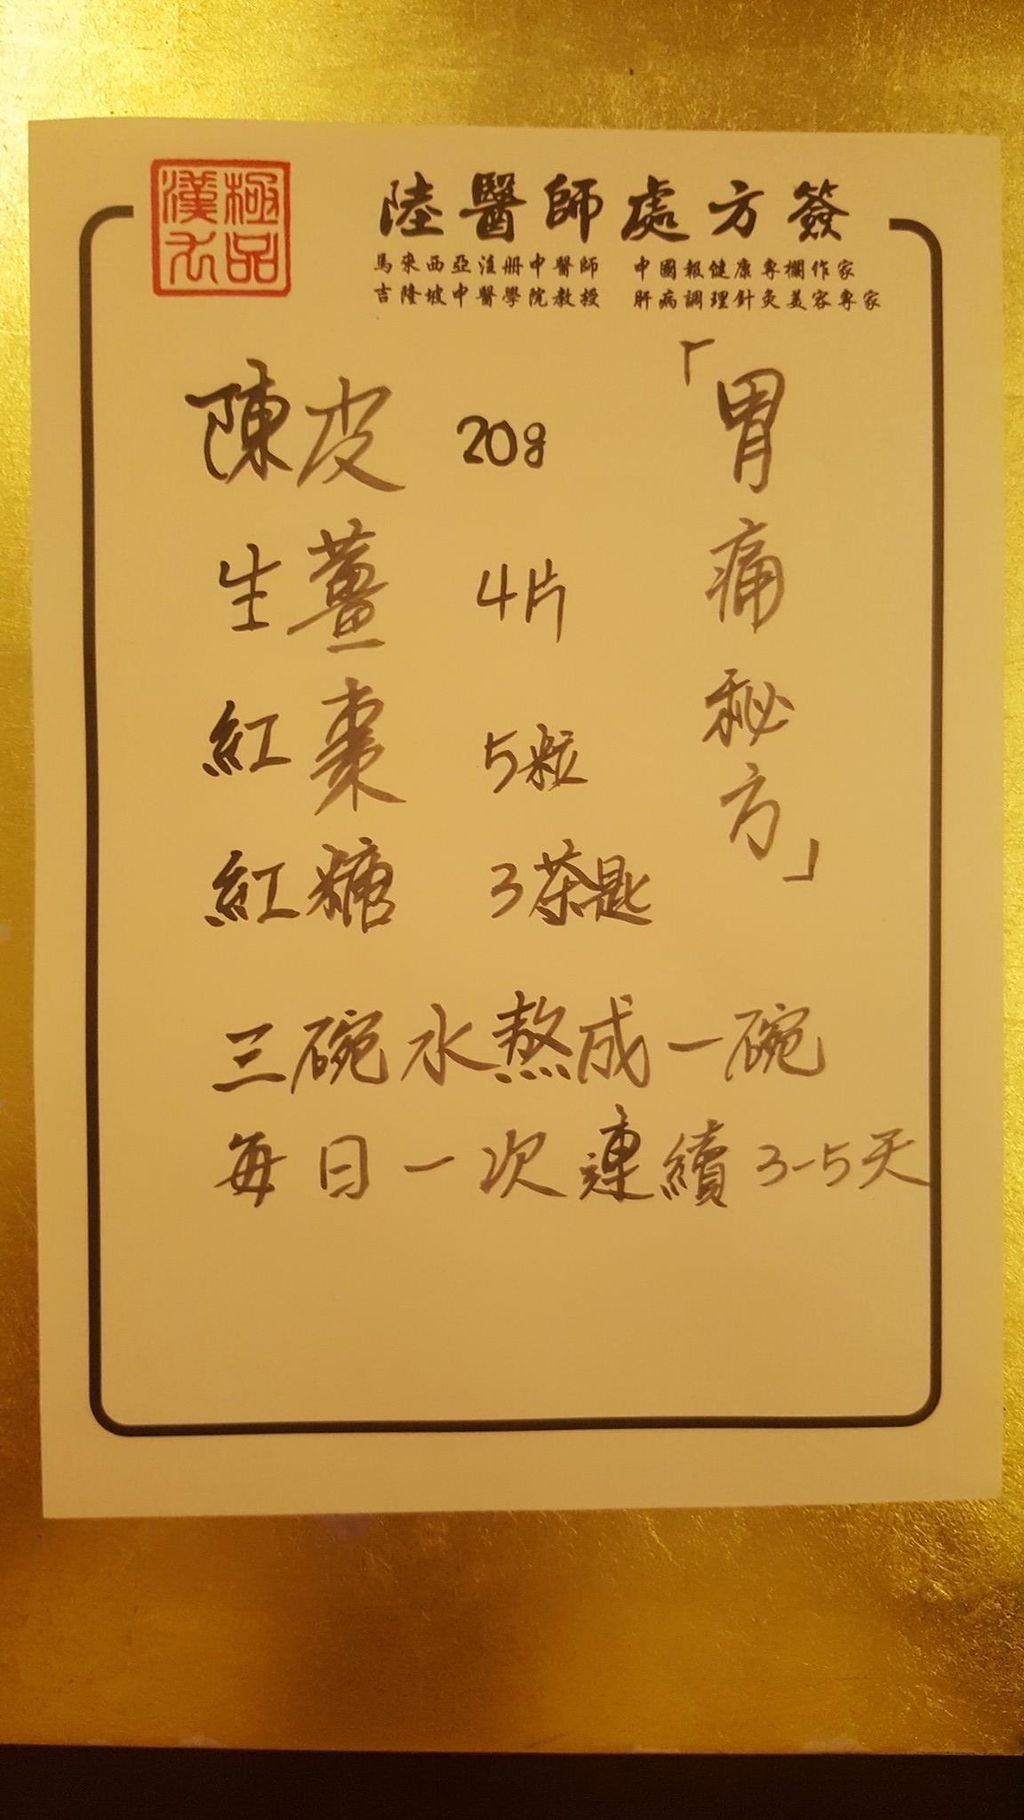 極品
漢方
陸醫師處方簽
馬來西亞注册中醫師 中國報健康專欄作家
吉隆坡中醫學院教授 肝病調理針灸美容專家
「胃痛秘方」
陳皮 20g
生薑 4片
紅棗 5粒
紅糖 3茶匙
三碗水熬成一碗
每日一次連續3-5天